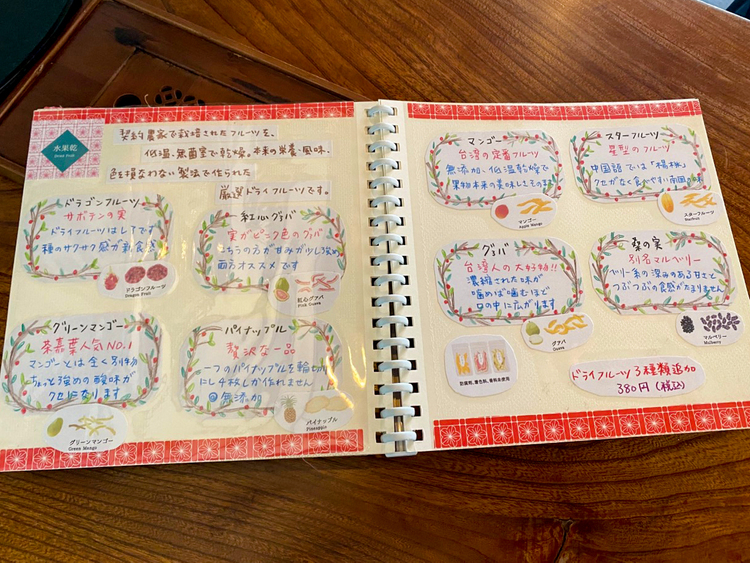 水果乾
Dried Fruit
契約農家で栽培されたフルーツを、
低温・無菌室で乾燥。本来の栄養・風味、
色を損なわない製法で作られた
厳選ドライフルーツです。
ドラゴンフルーツ
サボテンの実
ドライフルーツはレアです
種のサクサク感が新食感
ドラゴンフルーツ
Dragon Fruit
紅心グァバ
実がピンク色のグァバ
こちらの方が甘みが少し強め
両方オススメです
紅心グアバ
Pink Guava
グリーンマンゴー
茶嘉葉人気NO.1
マンゴーとは全く別物
ちょっと強めの酸味が
クセになります
グリーンマンゴー
Green Mango
パイナップル
贅沢な一品
一つのパイナップルを輪切り
にし4枚しか作れません
@無添加
パイナップル
Pineapple
マンゴー
台湾の定番フルーツ
無添加、低温乾燥で
果物本来の美味しさその
マンゴー
Apple Mango
スターフルーツ
星型のフルーツ
中国語では「楊桃」
クセがなく食べやすい南国の味
スターフルーツ
Starfruit
グァバ
台湾人の大好物!!
濃縮された味が
噛めば噛むほど
口の中に広がります
グアバ
Guava
桑の実
別名マルベリー
ベリー系の深みのある甘さと
つぶつぶの食感がたまりません
マルベリー
Mulberry
防腐剤、着色料、香料未使用
ドライフルーツ3種類追加
380円(税込)